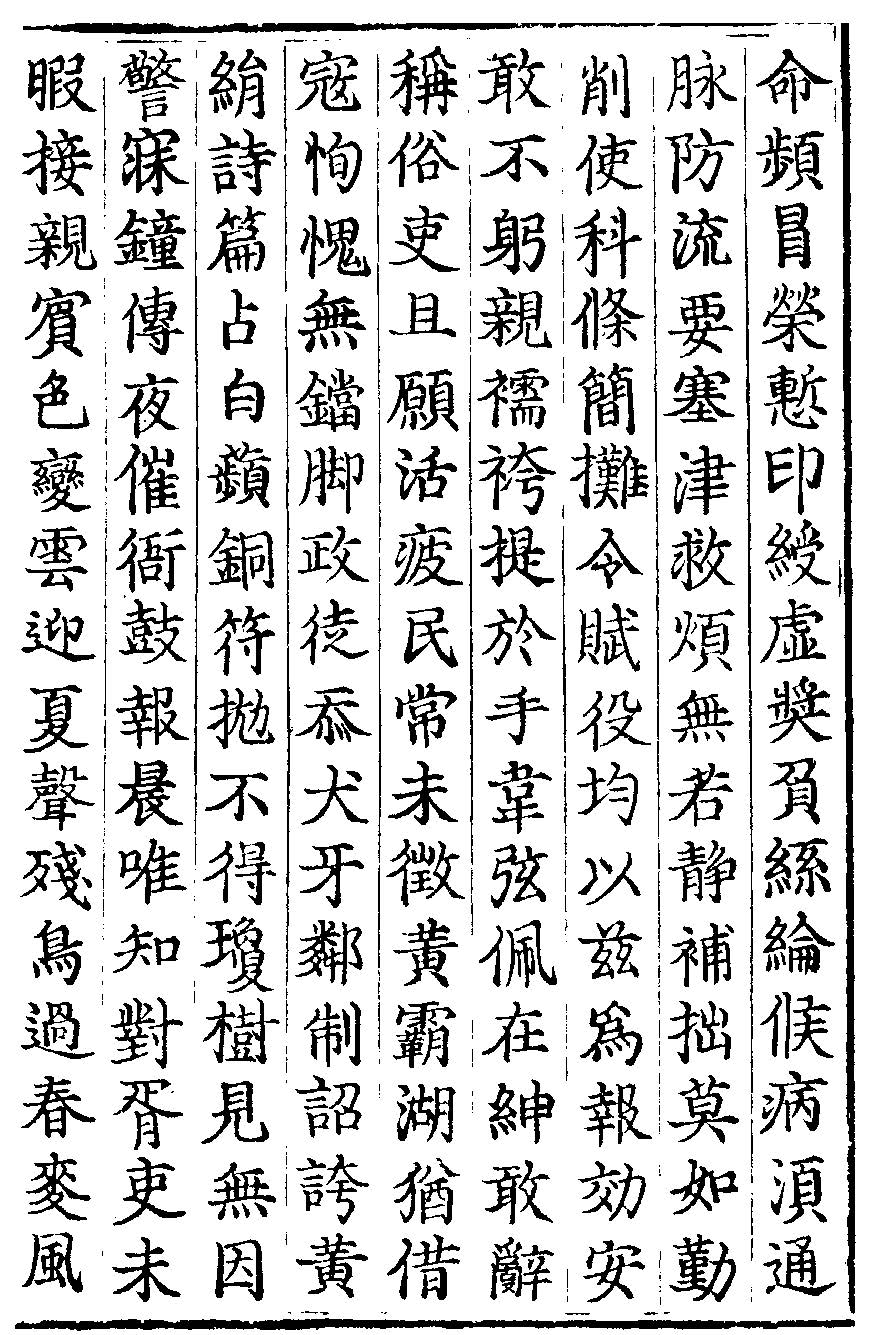 命頻冒榮慙印綬虛奬負絲綸候病湏通
脉防流要塞津救煩無若静補拙莫如勤
削使科條簡攤令賦役均以兹爲報効安
敢不躬親襦袴提於手韋弦佩在紳敢辭
稱俗吏且願活疲民常未徴黄霸湖猶借
寇恂愧無鐺脚政徒忝犬牙鄰制詔誇黄
絹詩篇占白蘋銅符抛不得瓊樹見無因
警寐鐘傳夜催衙鼓報晨唯知對胥吏未
暇接親賓色變雲迎夏聲殘鳥過春麥風